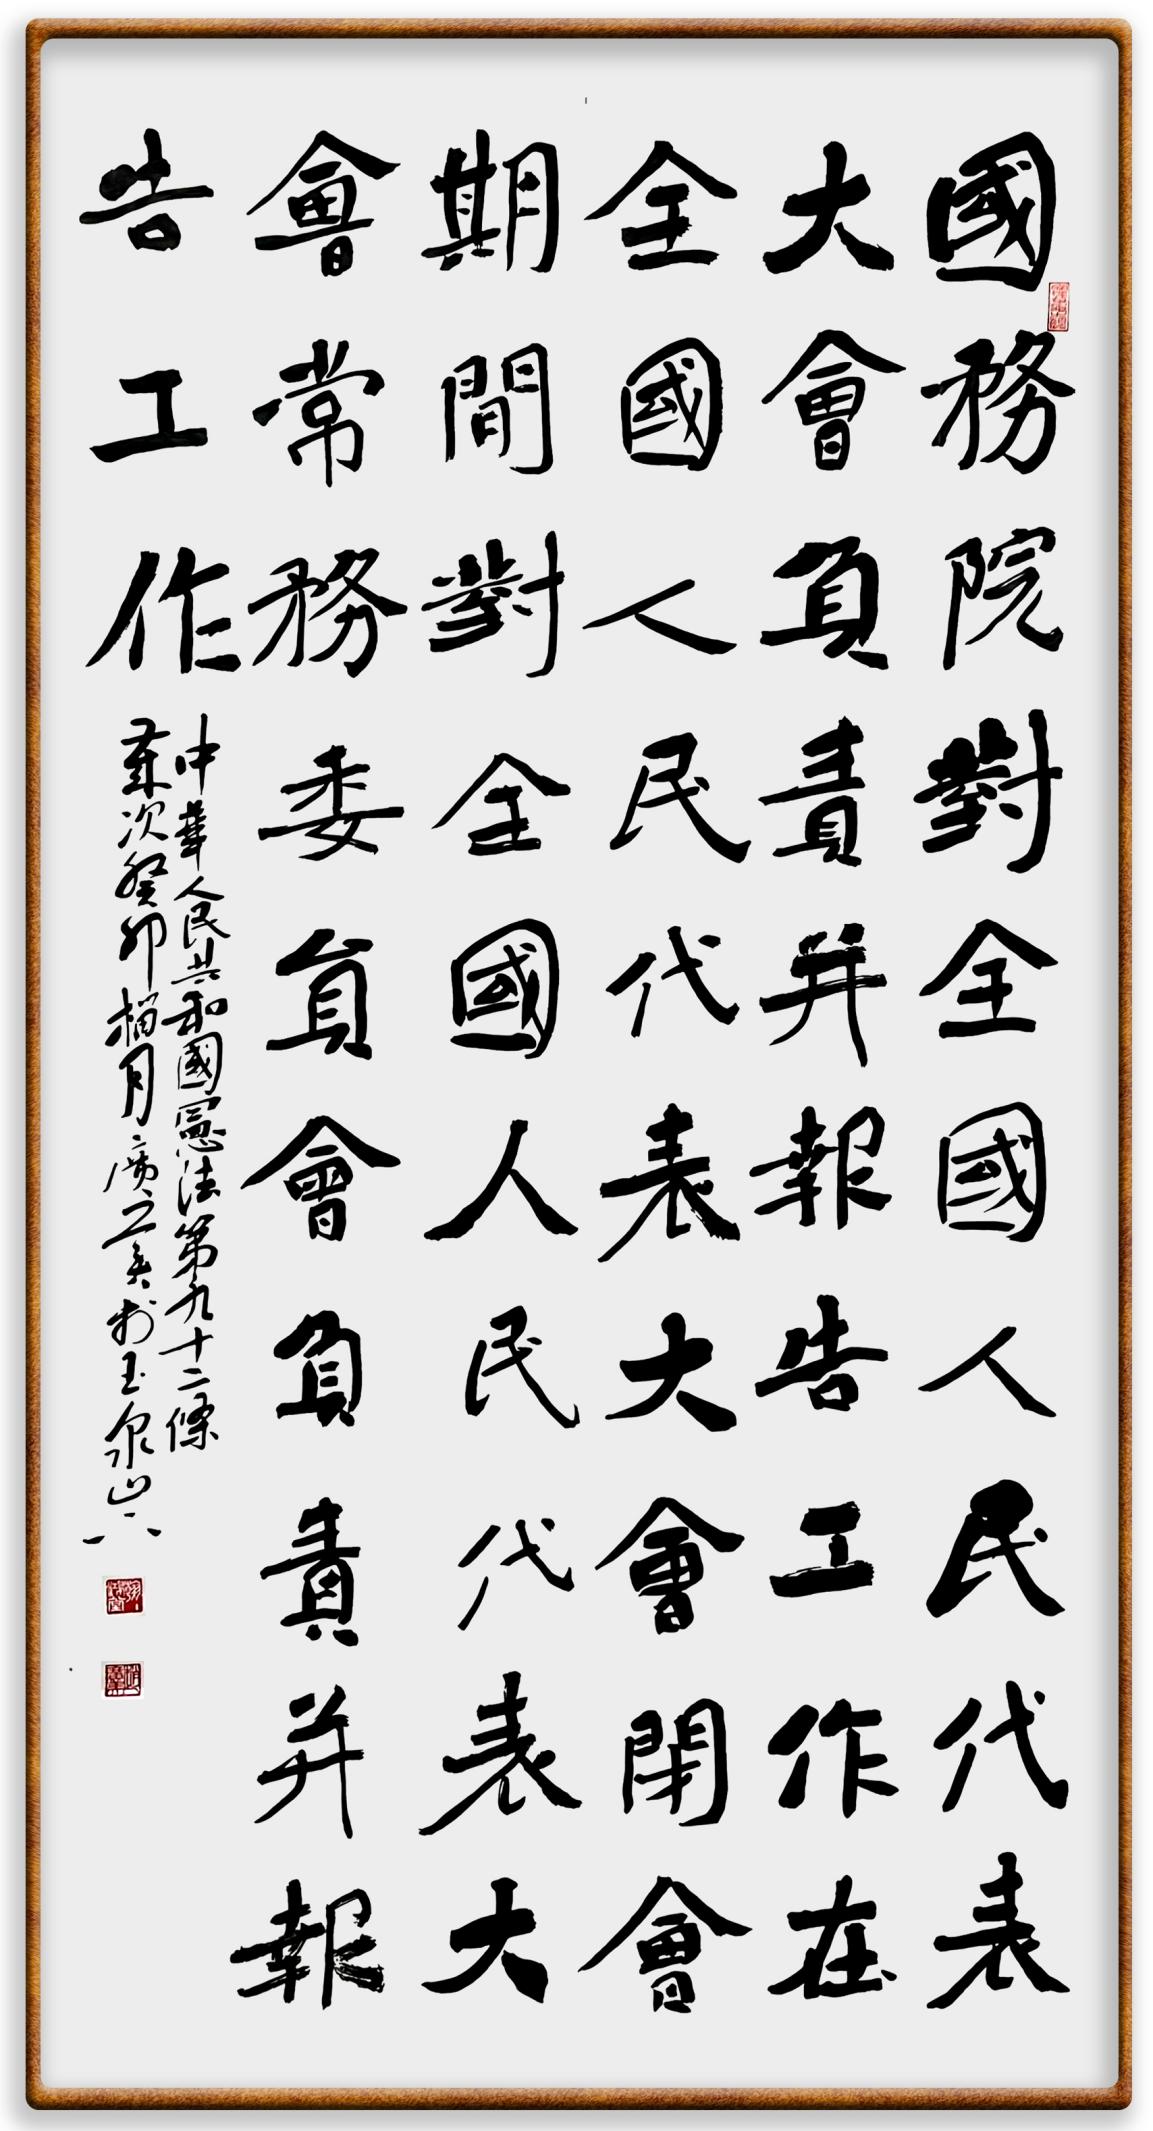 國務院對全國人民代表
大會負責并報告工作在
全國人民代表大會閉會
期間對全國人民代表大
會常務委員會負責并報
告工作
中華人民共和國憲法第九十二條
歲次癸卯桐月廣之書於玉泉山